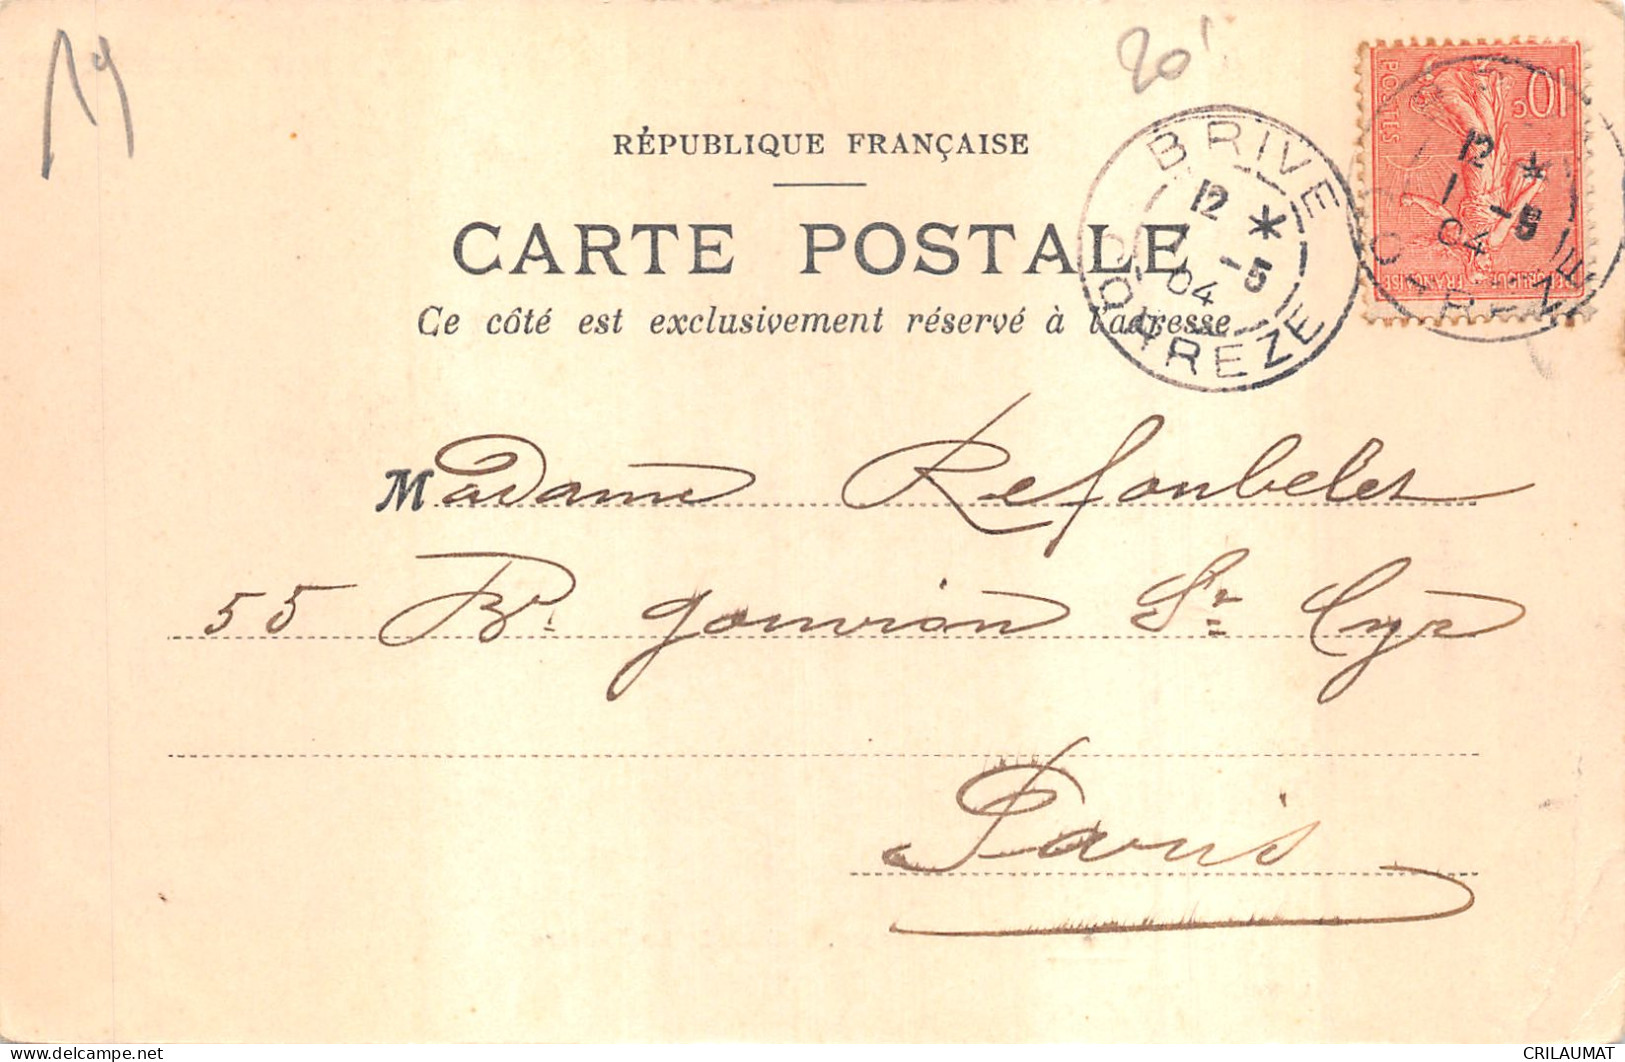 19
20'
RÉPUBLIQUE FRANÇAISE
CARTE POSTALE
Ce côté est exclusivement réservé à l'adresse
BRIVE
12 *
1 -5
04
CORREZE
10c
POSTES
REPUBLIQUE FRANÇAISE
12 *
1 -5
04
Madame Refoubelet
55 Bd. gouvion St Cyr
Paris
delcampe.net
CRILAUMAT